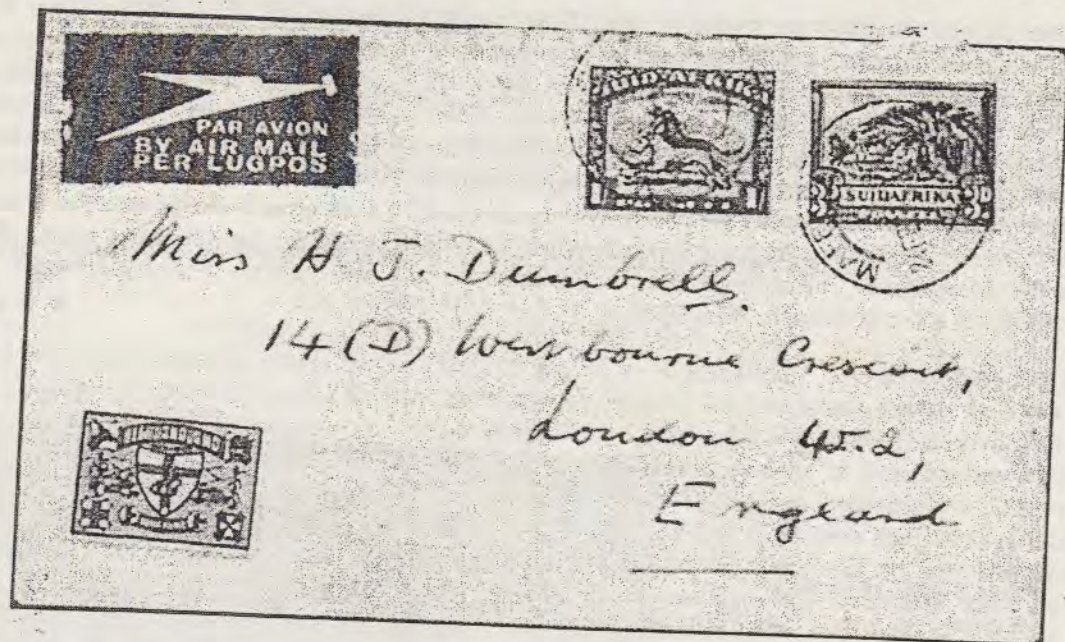 PAR AVION
BY AIR MAIL
PER LUGPOS
SUID-AFRIKA
1/
3D SUIDAFRIKA 3D
Miss H J. Dumbrell.
14 (D) Westbourne Crescent,
London W.2,
England